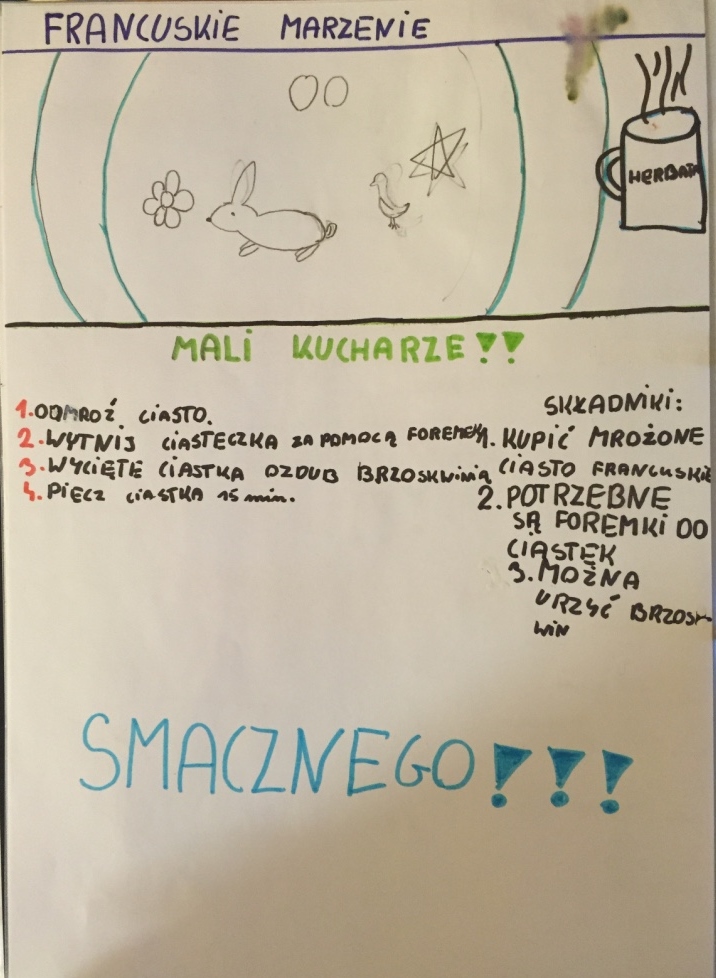 FRANCUSKIE MARZENIE
HERBATA
MALI KUCHARZE!!
1. ODMROŹ CIASTO.
2. WYTNIJ CIASTECZKA ZA POMOCĄ FOREMEK
3. WYCIĘTE CIASTKA OZDUB BRZOSKWINIĄ
4. PIECZ CIASTKA 15 min.
SKŁADNIKI:
1. KUPIĆ MROŻONE
CIASTO FRANCUSKIE
2. POTRZEBNE
SĄ FOREMKI DO
CIASTEK
3. MOŻNA
URZYĆ BRZOSK
WIN
SMACZNEGO!!!